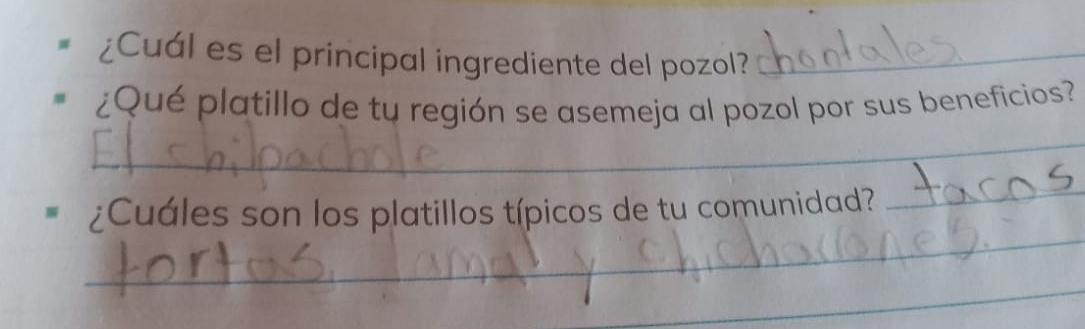 ¿Cuál es el principal ingrediente del pozol? chontales
¿Qué platillo de tu región se asemeja al pozol por sus beneficios?
El chilpachole
¿Cuáles son los platillos típicos de tu comunidad? tacos
tortas, tamal y chicharrones.